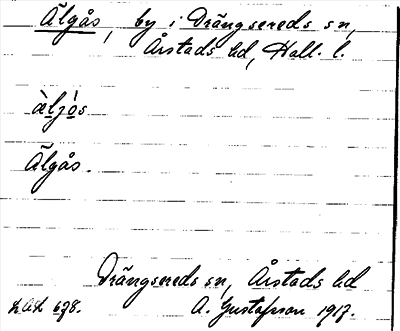 Älgås, by i Drängsereds sn,
Årstads hd, Hall. l.
àljòs
Älgås.
Drängsereds sn, Årstads hd
LAL 678. A. Gustafsson 1917.